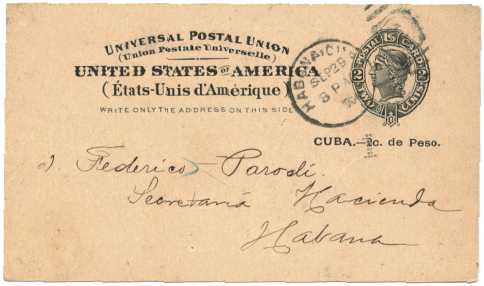 UNIVERSAL POSTAL UNION
(Union Postale Universelle)
UNITED STATES OF AMERICA
(États-Unis d'Amérique)
WRITE ONLY THE ADDRESS ON THIS SIDE
HABANA, CU
SEP 29
8 P
POSTAL CARD
TWO 2 CENTS 2
CUBA.—2c. de Peso.
Federico Parodi.
Secretaria Hacienda
Habana